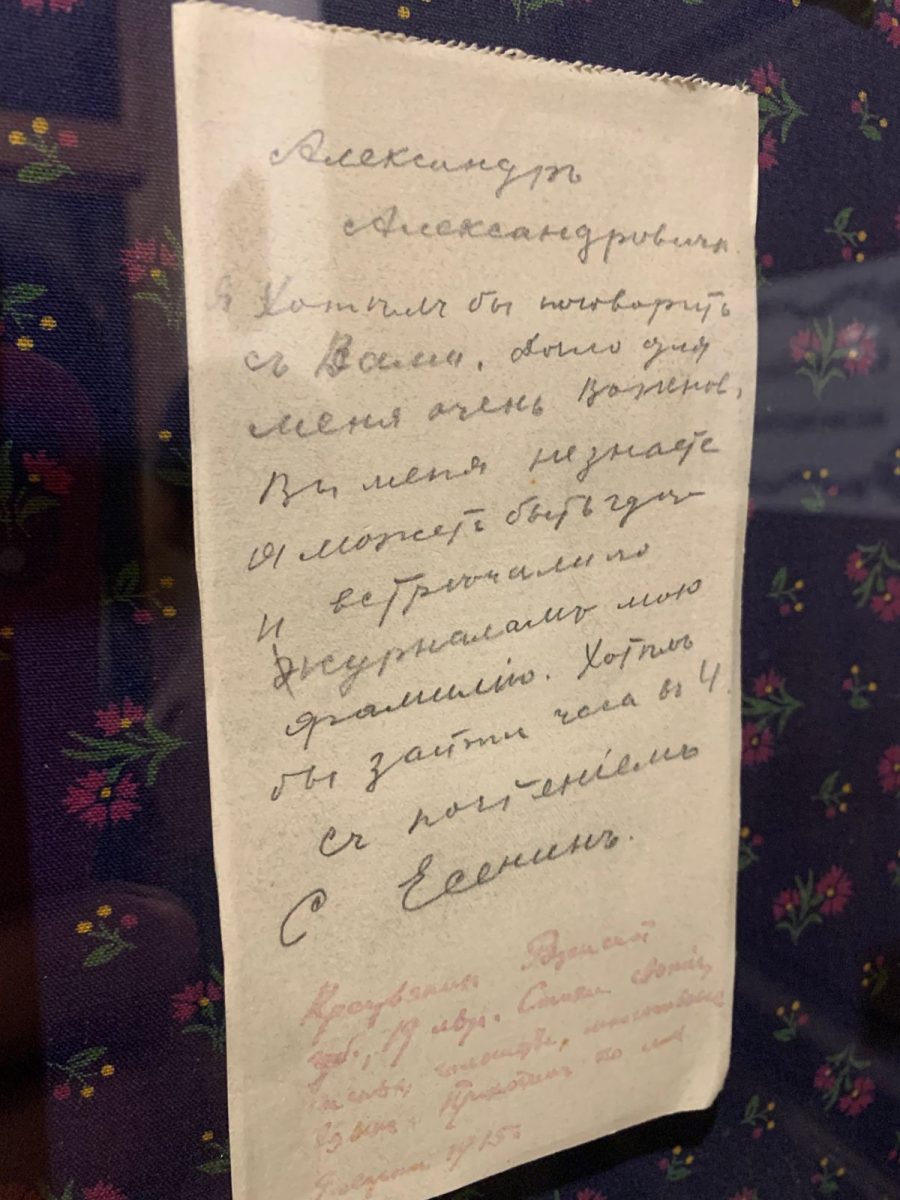 Александръ
Александровичъ.
Я Хотѣлъ бы поговорить
съ Вами. Дѣло для
меня очень важное.
Вы меня не знаете
а можетъ быть где
и встречали по
журналамъ мою
фамилію. Хотѣлъ
бы зайти часа въ 4.
Съ почтеніемъ
С Есенинъ.
Крестьянин Рязанской
губ., 19 лет. Стихи свежие,
чистые, голосистые, многословный
язык. Приходил ко мне
9 марта 1915.